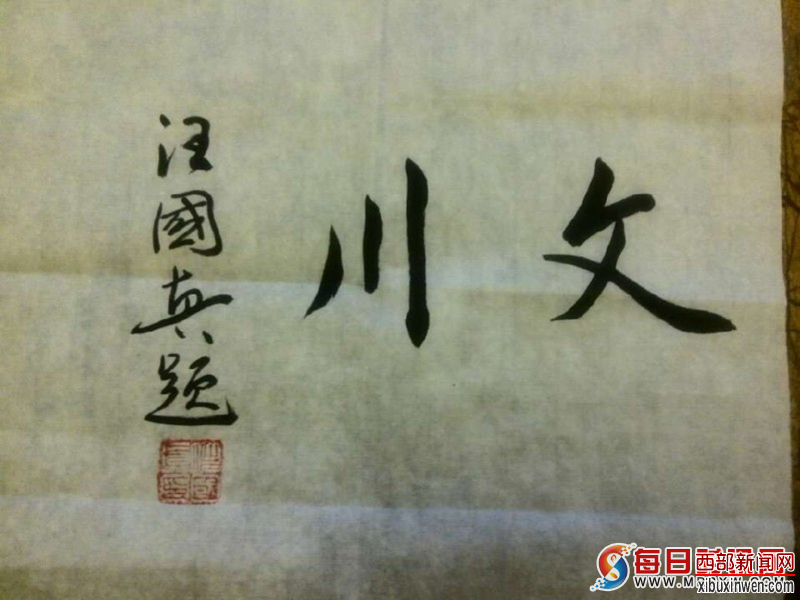 文川
汪國真題
每日
西部新闻网
xibuxinwen.com